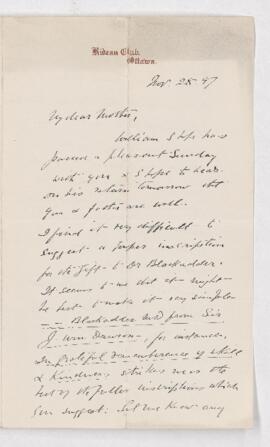 Rideau Club,
Ottawa.
Nov. 28 97
My dear Mother,
William I hope has
passed a pleasant Sunday
with you & I hope to hear
on his return tomorrow that
you & father are well.
I find it very difficult to
suggest a proper inscription
for the gift to Dr Blackader.
It seems to me that it might
be best to make it very simple
Blackader from Sir
J. Wm Dawson - for instance.
In grateful remembrance of skill
& kindness strikes me as the
best of the fuller inscriptions which
you suggest. Let me know any